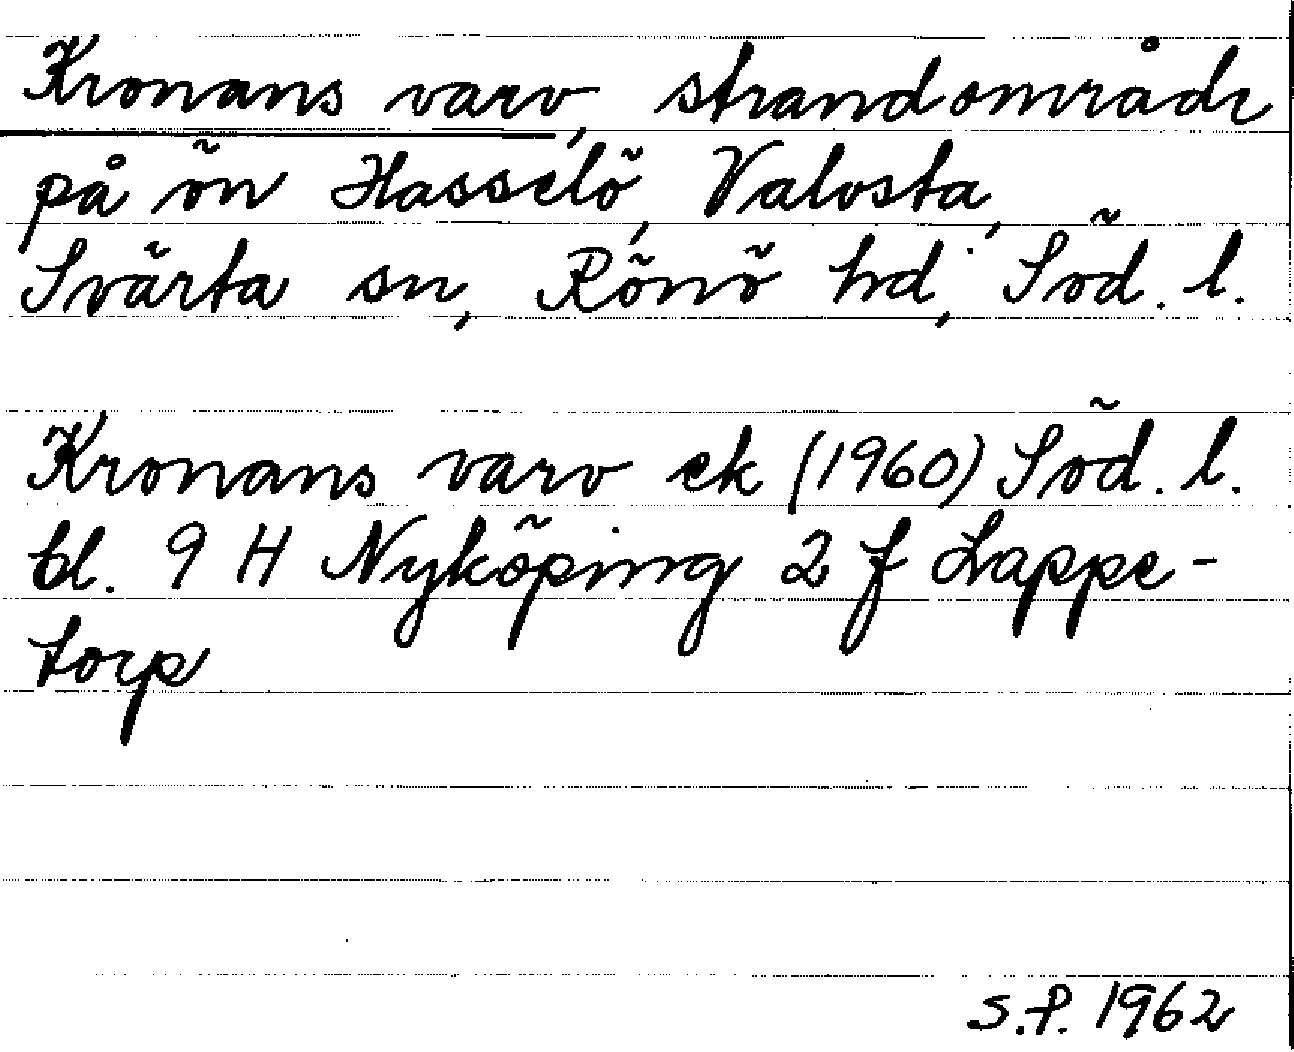 Kronans varv, strandområde
på ön Hasselö, Valvsta,
Svärta sn, Rönö hd, Söd. l.
Kronans varv ek (1960) Söd. l.
bl. 9 H Nyköping 2 f Lappe-
torp
S.P. 1962